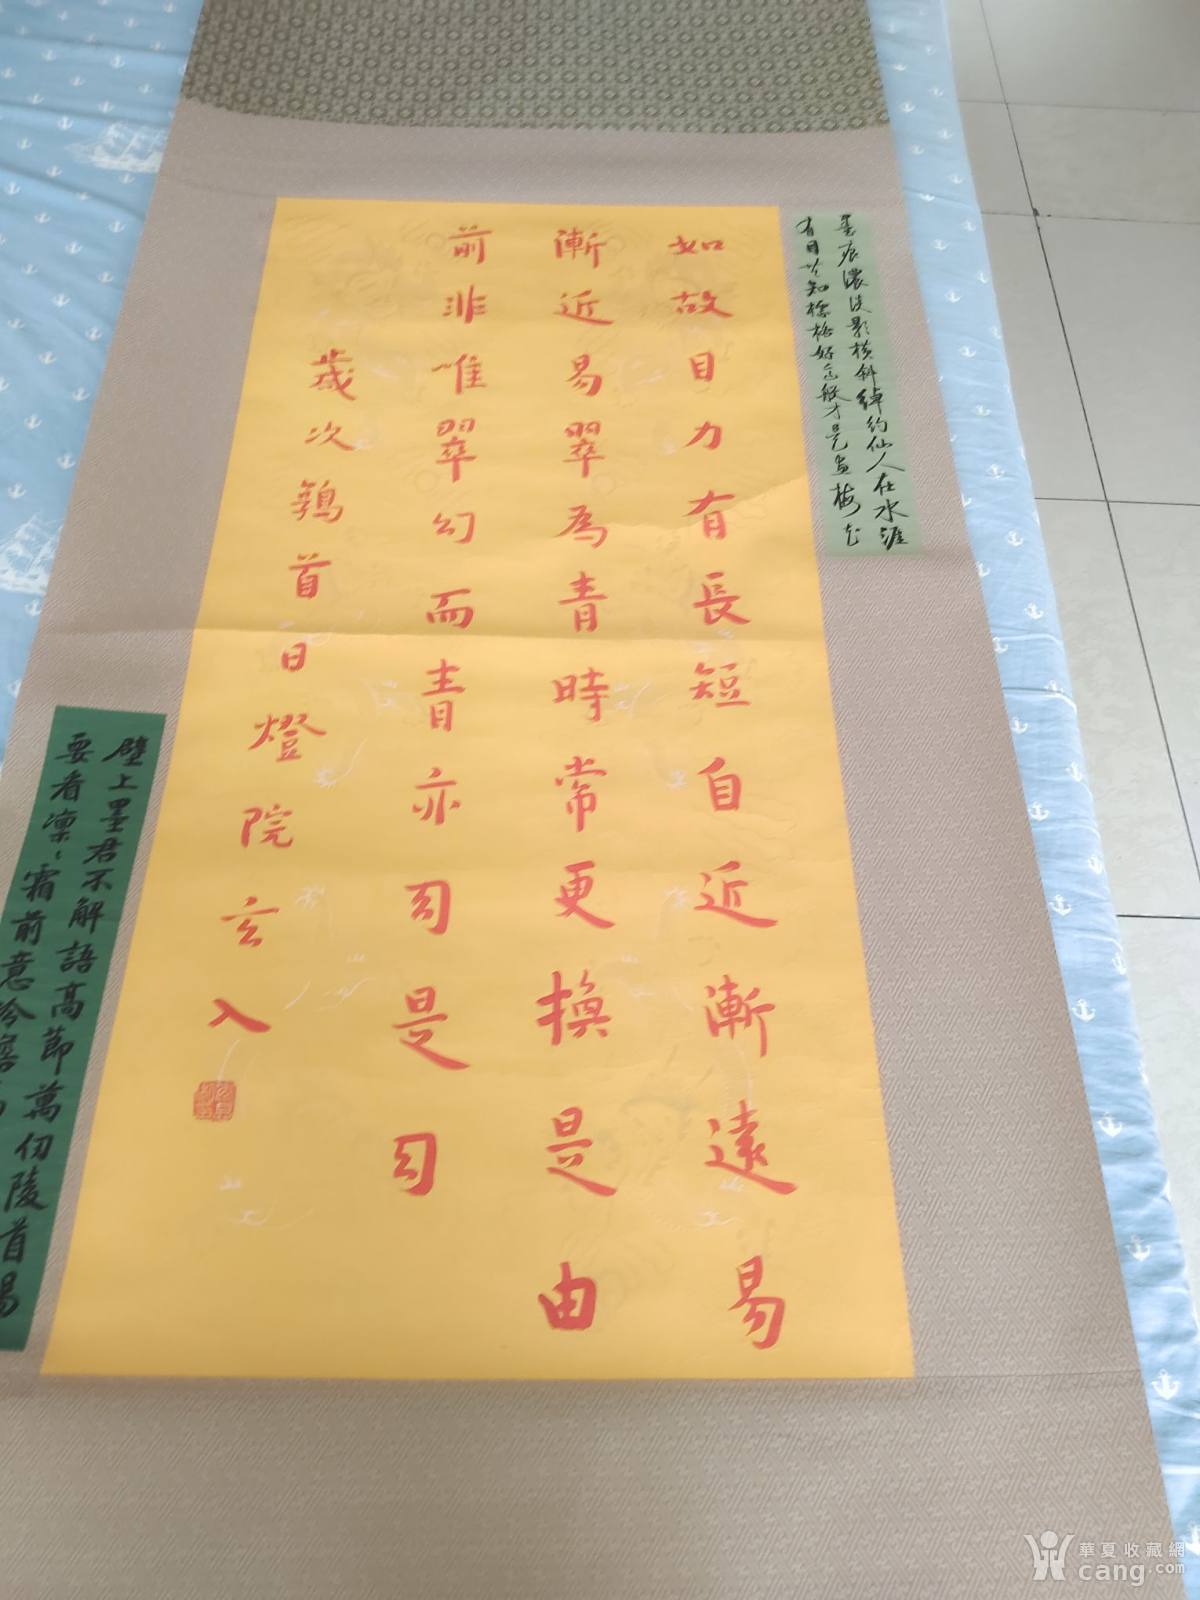 墨痕濃淡影橫斜綽約仙人在水涯
有目共知標格好怎般才是畫梅花
如故目力有長短自近漸遠易
漸近易翠為青時常更換是由
前非唯翠幻而青亦幻是幻
歲次鶉首日燈院玄入
壁上墨君不解語高節萬仞陵首陽
要看凜〻霜前意冷
華夏收藏網
cang.com